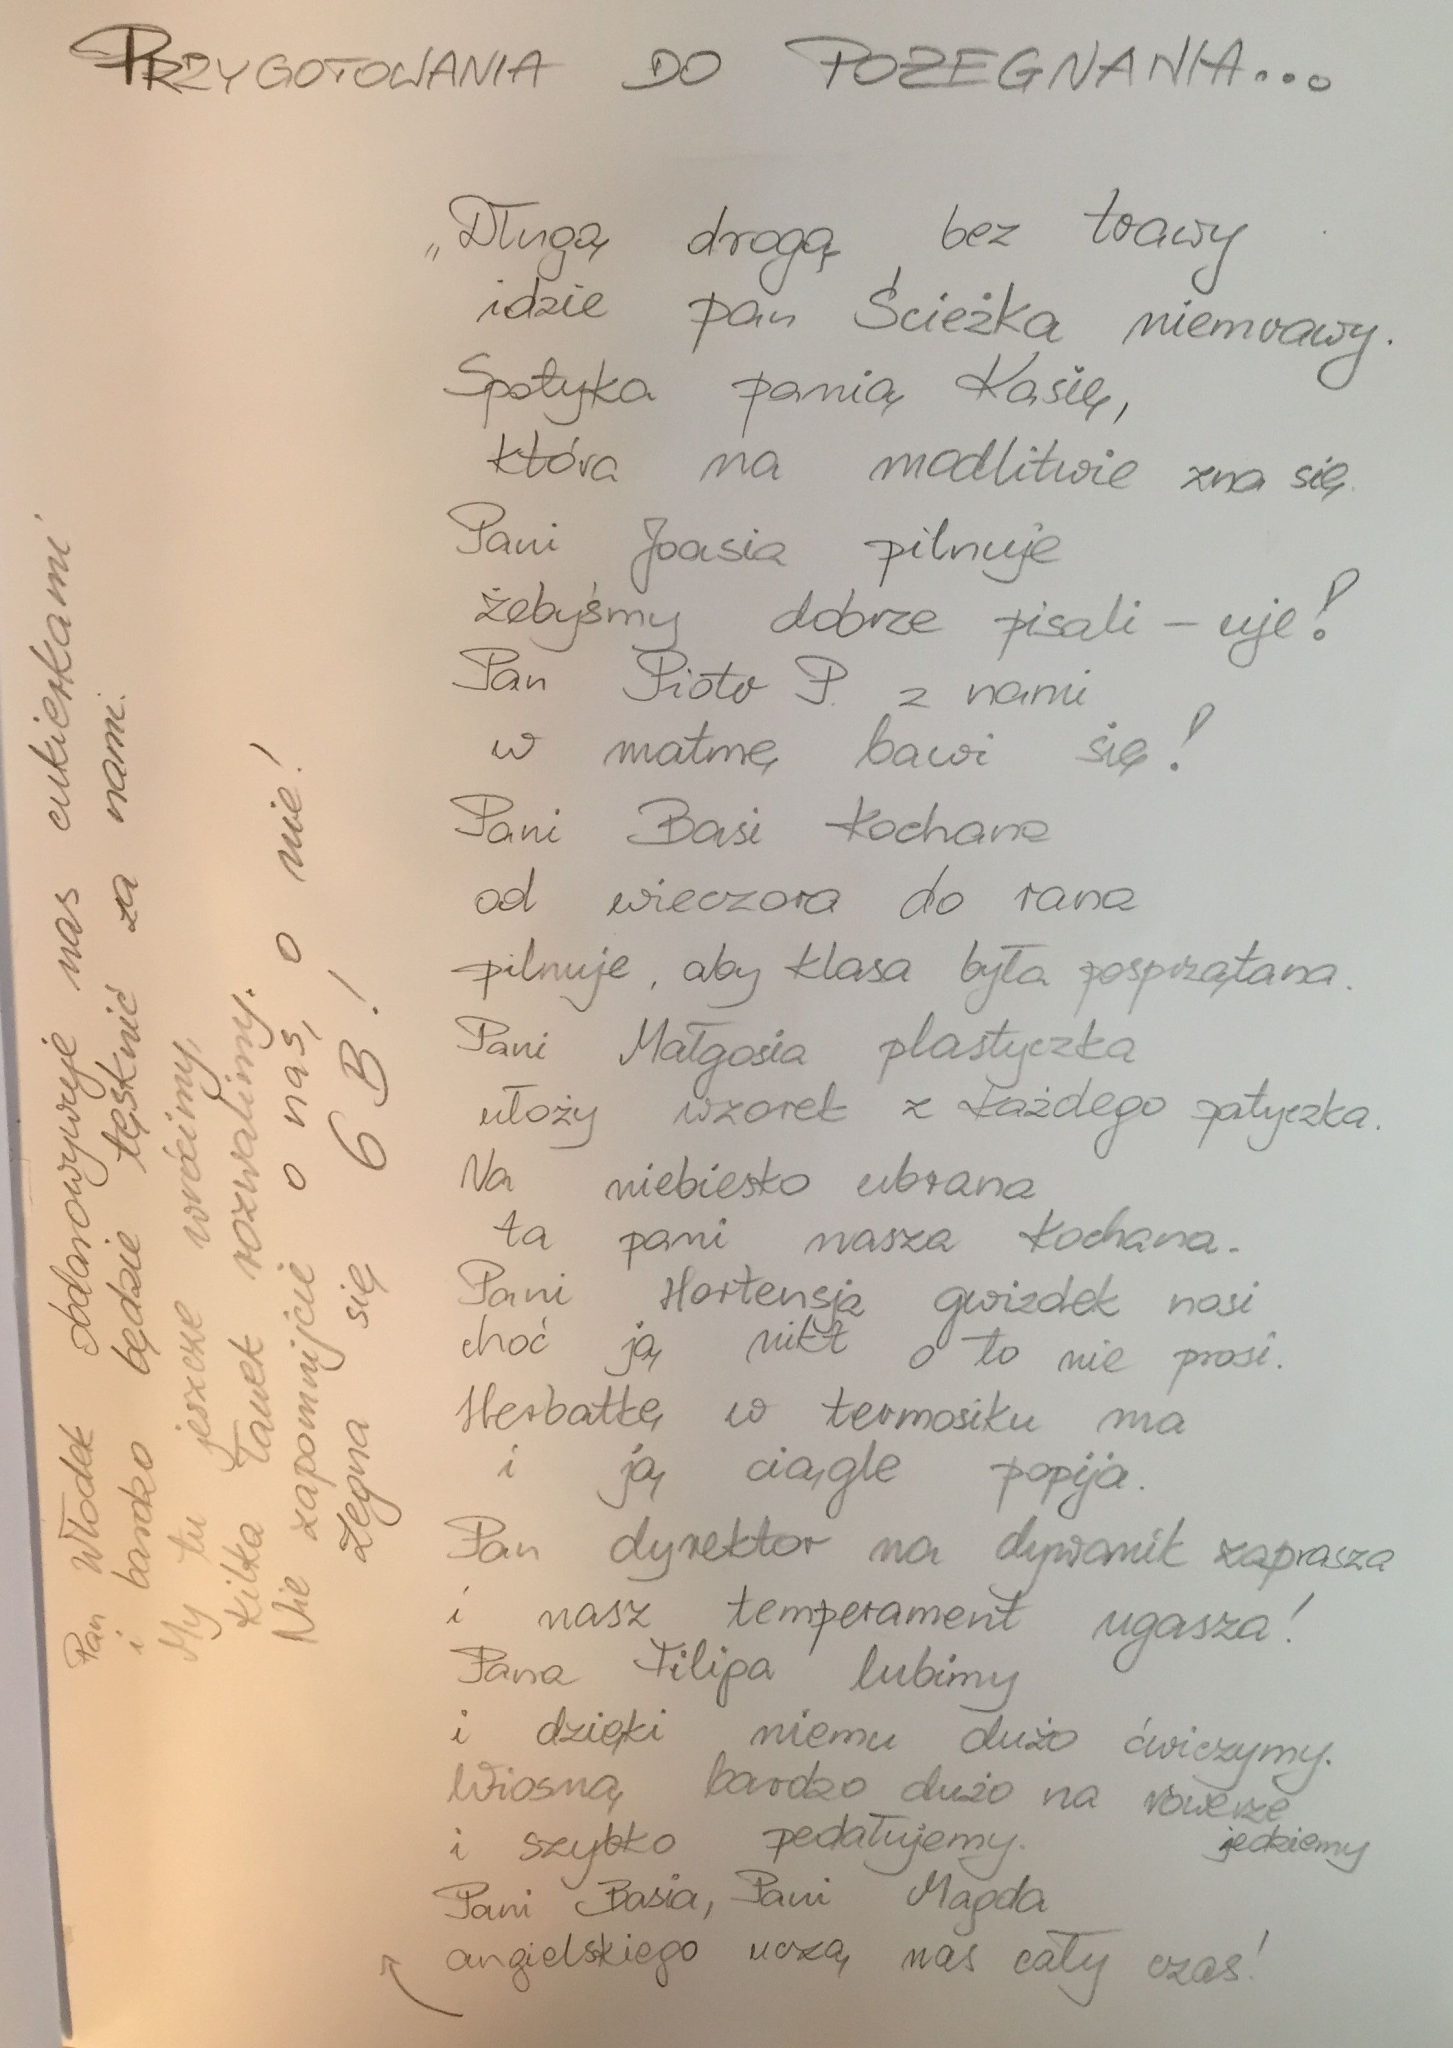 PRZYGOTOWANIA DO POŻEGNANIA...
„Długą drogą bez trawy
idzie pan Ścieżka niemrawy.
Spotyka panią Kasię,
która na modlitwie zna się.
Pani Joasia pilnuje
żebyśmy dobrze pisali – uje!
Pan Piotr P. z nami
w matmę bawi się!
Pani Basi kochane
od wieczora do rana
pilnuje, aby klasa była posprzątana.
Pani Małgosia plastyczka
ułoży wzorek z każdego patyczka.
Na niebiesko ubrana
ta pani nasza kochana.
Pani Hortensja gwizdek nosi
choć ją nikt o to nie prosi.
Herbatkę w termosiku ma
i ją ciągle popija.
Pan dyrektor na dywanik zaprasza
i nasz temperament ugasza!
Pana Filipa lubimy
i dzięki niemu dużo ćwiczymy.
Wiosną bardzo dużo na rowerze
jedziemy
i szybko pedałujemy.
Pani Basia, Pani Magda
angielskiego uczą nas cały czas!
Pan Włodek obdarowywuje nas cukierkami
i bardzo będzie tęsknić za nami.
My tu jeszcze wrócimy,
kilka ławek rozwalimy.
Nie zapomnijcie o nas, o nie!
Żegna się 6 B!